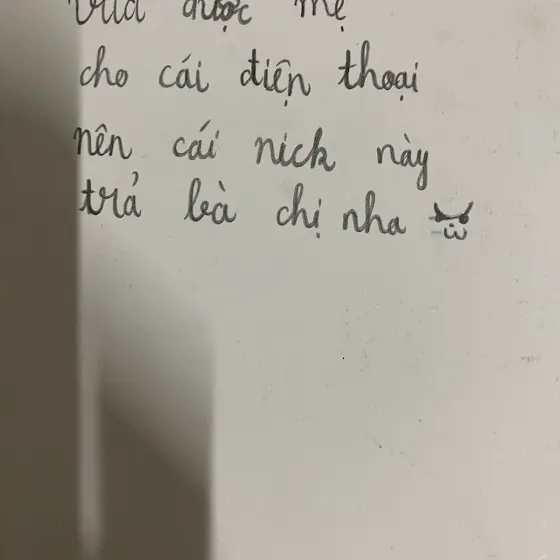 vừa được mẹ
cho cái điện thoại
nên cái nick này
trả bà chị nha